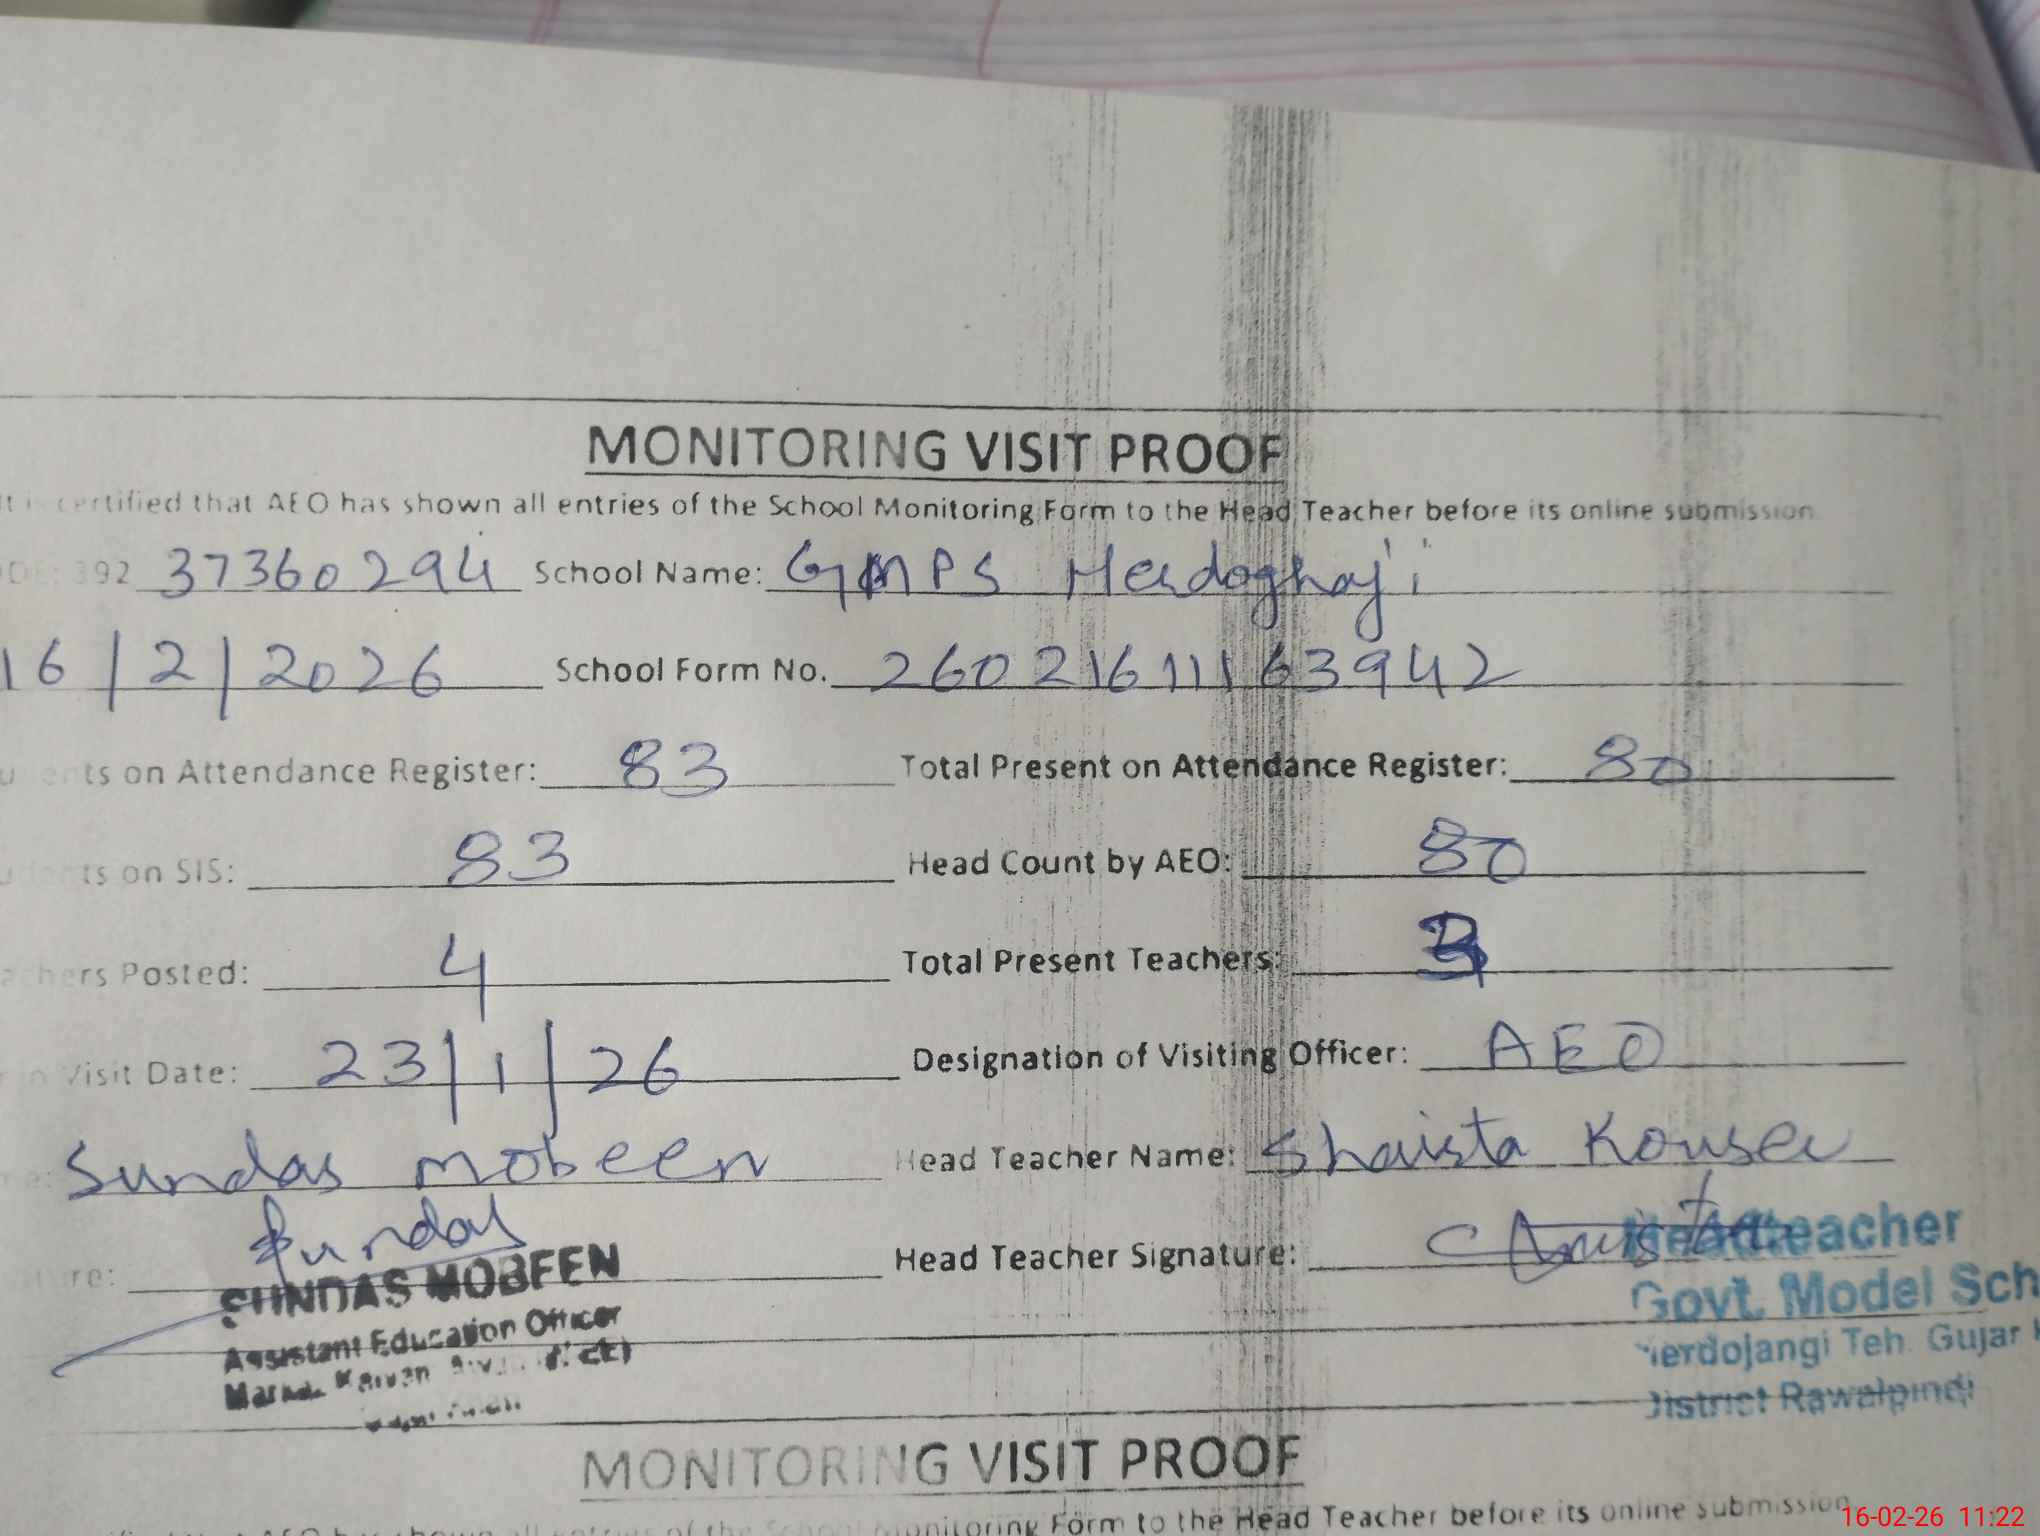 MONITORING VISIT PROOF
It is certified that AEO has shown all entries of the School Monitoring Form to the Head Teacher before its online submission
392 37360294 School Name: GMPS Herdoghaji
16/2/2026 School Form No. 26021611163942
ts on Attendance Register: 83 Total Present on Attendance Register: 80
ts on SIS: 83 Head Count by AEO: 80
achers Posted: 4 Total Present Teachers:
Visit Date: 23/1/26 Designation of Visiting Officer: AEO
Sundas Mobeen Head Teacher Name: Shaista Kouser
Sundas
Head Teacher Signature:
SUNDAS MOBEEN
Assistant Education Officer
Headteacher
Govt. Model Sch
Teh. Gujar
District Rawalpindi
MONITORING VISIT PROOF
Form to the Head Teacher before its online submission
16-02-26 11:22